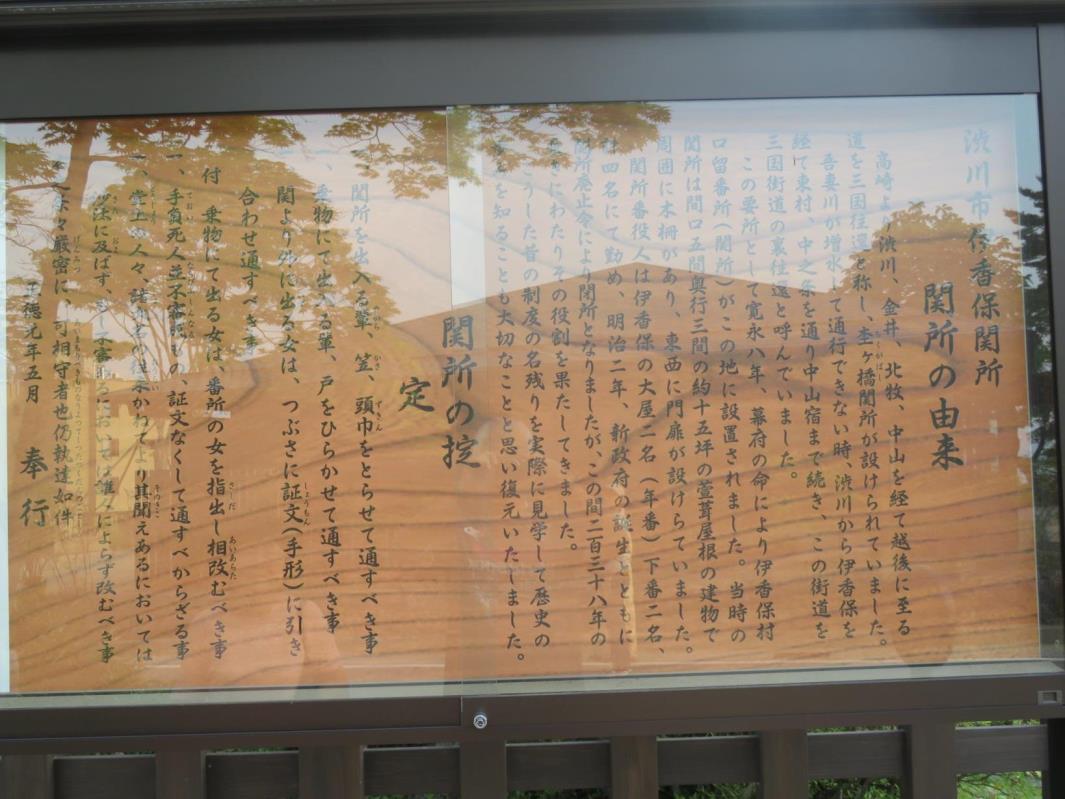 渋川市伊香保関所
関所の由来
高崎より渋川、金井、北牧、中山を経て越後に至る
道を三国往還と称し、杢ヶ橋関所が設けられていました。
吾妻川が増水して通行できない時、渋川から伊香保を
経て東村、中之条を通り中山宿まで続き、この街道を
三国街道の裏往還と呼んでいました。
この要所として寛永八年、幕府の命により伊香保村
口留番所(関所)がこの地に設置されました。当時の
関所は間口五間奥行三間の約十五坪の萱葺屋根の建物で
周囲に木柵があり、東西に門扉が設けらていました。
関所番役人は伊香保の大屋二名(年番)下番二名、
計四名にて勤め、明治二年、新政府の誕生とともに
関所廃止令により閉所となりましたが、この間二百三十八年の
長きにわたりその役割を果たしてきました。
こうした昔の制度の名残りを実際に見学して歴史の
を知ることも大切なことと思い復元いたしました。
関所の掟
定
関所を出入る輩、笠、頭巾をとらせて通すべき事
一、乗物にて出入る輩、戸をひらかせて通すべき事
関より外に出る女は、つぶさに証文(手形)に引き
合わせ通すべき事
付 乗物にて出る女は、番所の女を指出し相改むべき事
一、手負死人並不審成もの、証文なくして通すべからざる事
一、堂上の人々、諸大名の往来かねてより其聞えあるにおいては
沙汰に及ばず、若し不審あるにおいては誰々によらず改むべき事
厳密に可相守者也仍執達如件
正徳元年五月 奉行